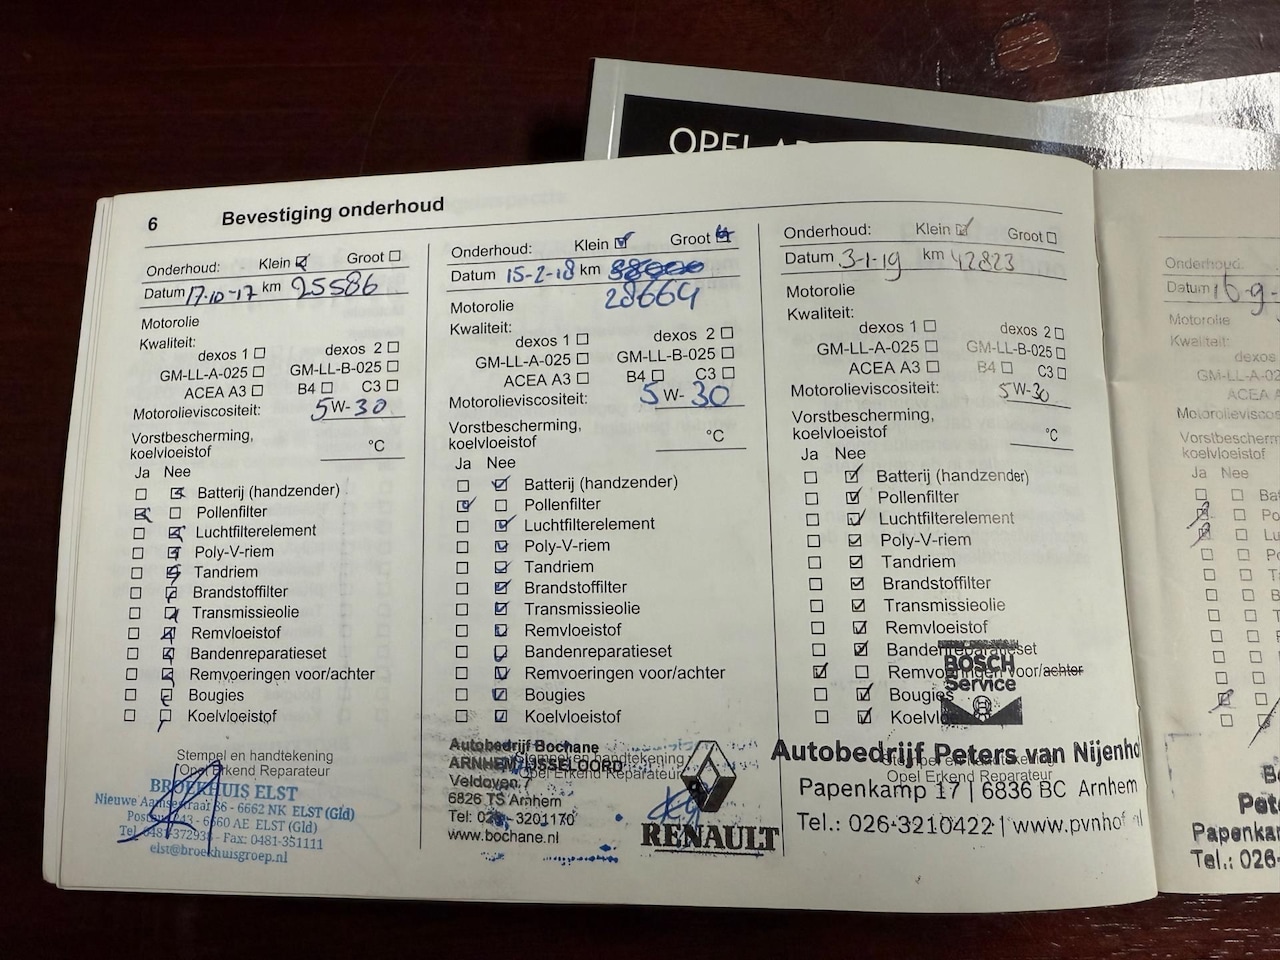 OPEL
6 Bevestiging onderhoud
Onderhoud: Klein Groot
Datum 17-10-17 km 25586
Motorolie
Kwaliteit:
dexos 1 dexos 2
GM-LL-A-025 GM-LL-B-025
ACEA A3 B4 C3
Motorolieviscositeit: 5W-30
Vorstbescherming,
koelvloeistof °C
Ja Nee
Batterij (handzender)
Pollenfilter
Luchtfilterelement
Poly-V-riem
Tandriem
Brandstoffilter
Transmissieolie
Remvloeistof
Bandenreparatieset
Remvoeringen voor/achter
Bougies
Koelvloeistof
Stempel en handtekening
Opel Erkend Reparateur
BROEKHUIS ELST
Nieuwe Aamsestraat 86 - 6662 NK ELST (Gld)
6660 AE ELST (Gld)
Fax: 0481-351111
elst@broekhuisgroep.nl
Onderhoud: Klein Groot
Datum 15-2-18 km
28664
Motorolie
Kwaliteit:
dexos 1 dexos 2
GM-LL-A-025 GM-LL-B-025
ACEA A3 B4 C3
Motorolieviscositeit: 5W-30
Vorstbescherming,
koelvloeistof °C
Ja Nee
Batterij (handzender)
Pollenfilter
Luchtfilterelement
Poly-V-riem
Tandriem
Brandstoffilter
Transmissieolie
Remvloeistof
Bandenreparatieset
Remvoeringen voor/achter
Bougies
Koelvloeistof
Stempel en handtekening
Opel Erkend Reparateur
Autobedrijf Bochane
ARNHEM IJSSELOORD
Veldoven 7
6826 TS Arnhem
Tel: 026 - 3201170
www.bochane.nl
RENAULT
Onderhoud: Klein Groot
Datum 3-1-19 km 42823
Motorolie
Kwaliteit:
dexos 1 dexos 2
GM-LL-A-025 GM-LL-B-025
ACEA A3 B4 C3
Motorolieviscositeit: 5W-30
Vorstbescherming,
koelvloeistof °C
Ja Nee
Batterij (handzender)
Pollenfilter
Luchtfilterelement
Poly-V-riem
Tandriem
Brandstoffilter
Transmissieolie
Remvloeistof
Bandenreparatieset
Remvoeringen voor/achter
Bougies
Koelvloe
BOSCH
Service
Stempel en handtekening
Opel Erkend Reparateur
Autobedrijf Peters van Nijenho
Papenkamp 17 | 6836 BC Arnhem
Tel.: 026-3210422 | www.pvnhof.nl
Onderhoud:
Datum 16-9-
Motorolie
Kwaliteit:
dexos
GM-LL-A-02
ACEA A
Motorolieviscos
Vorstbescherm
koelvloeistof
Ja Nee
Ba
Po
Lu
Po
Ta
B
T
R
B
Pete
Papenka
Tel.: 026-